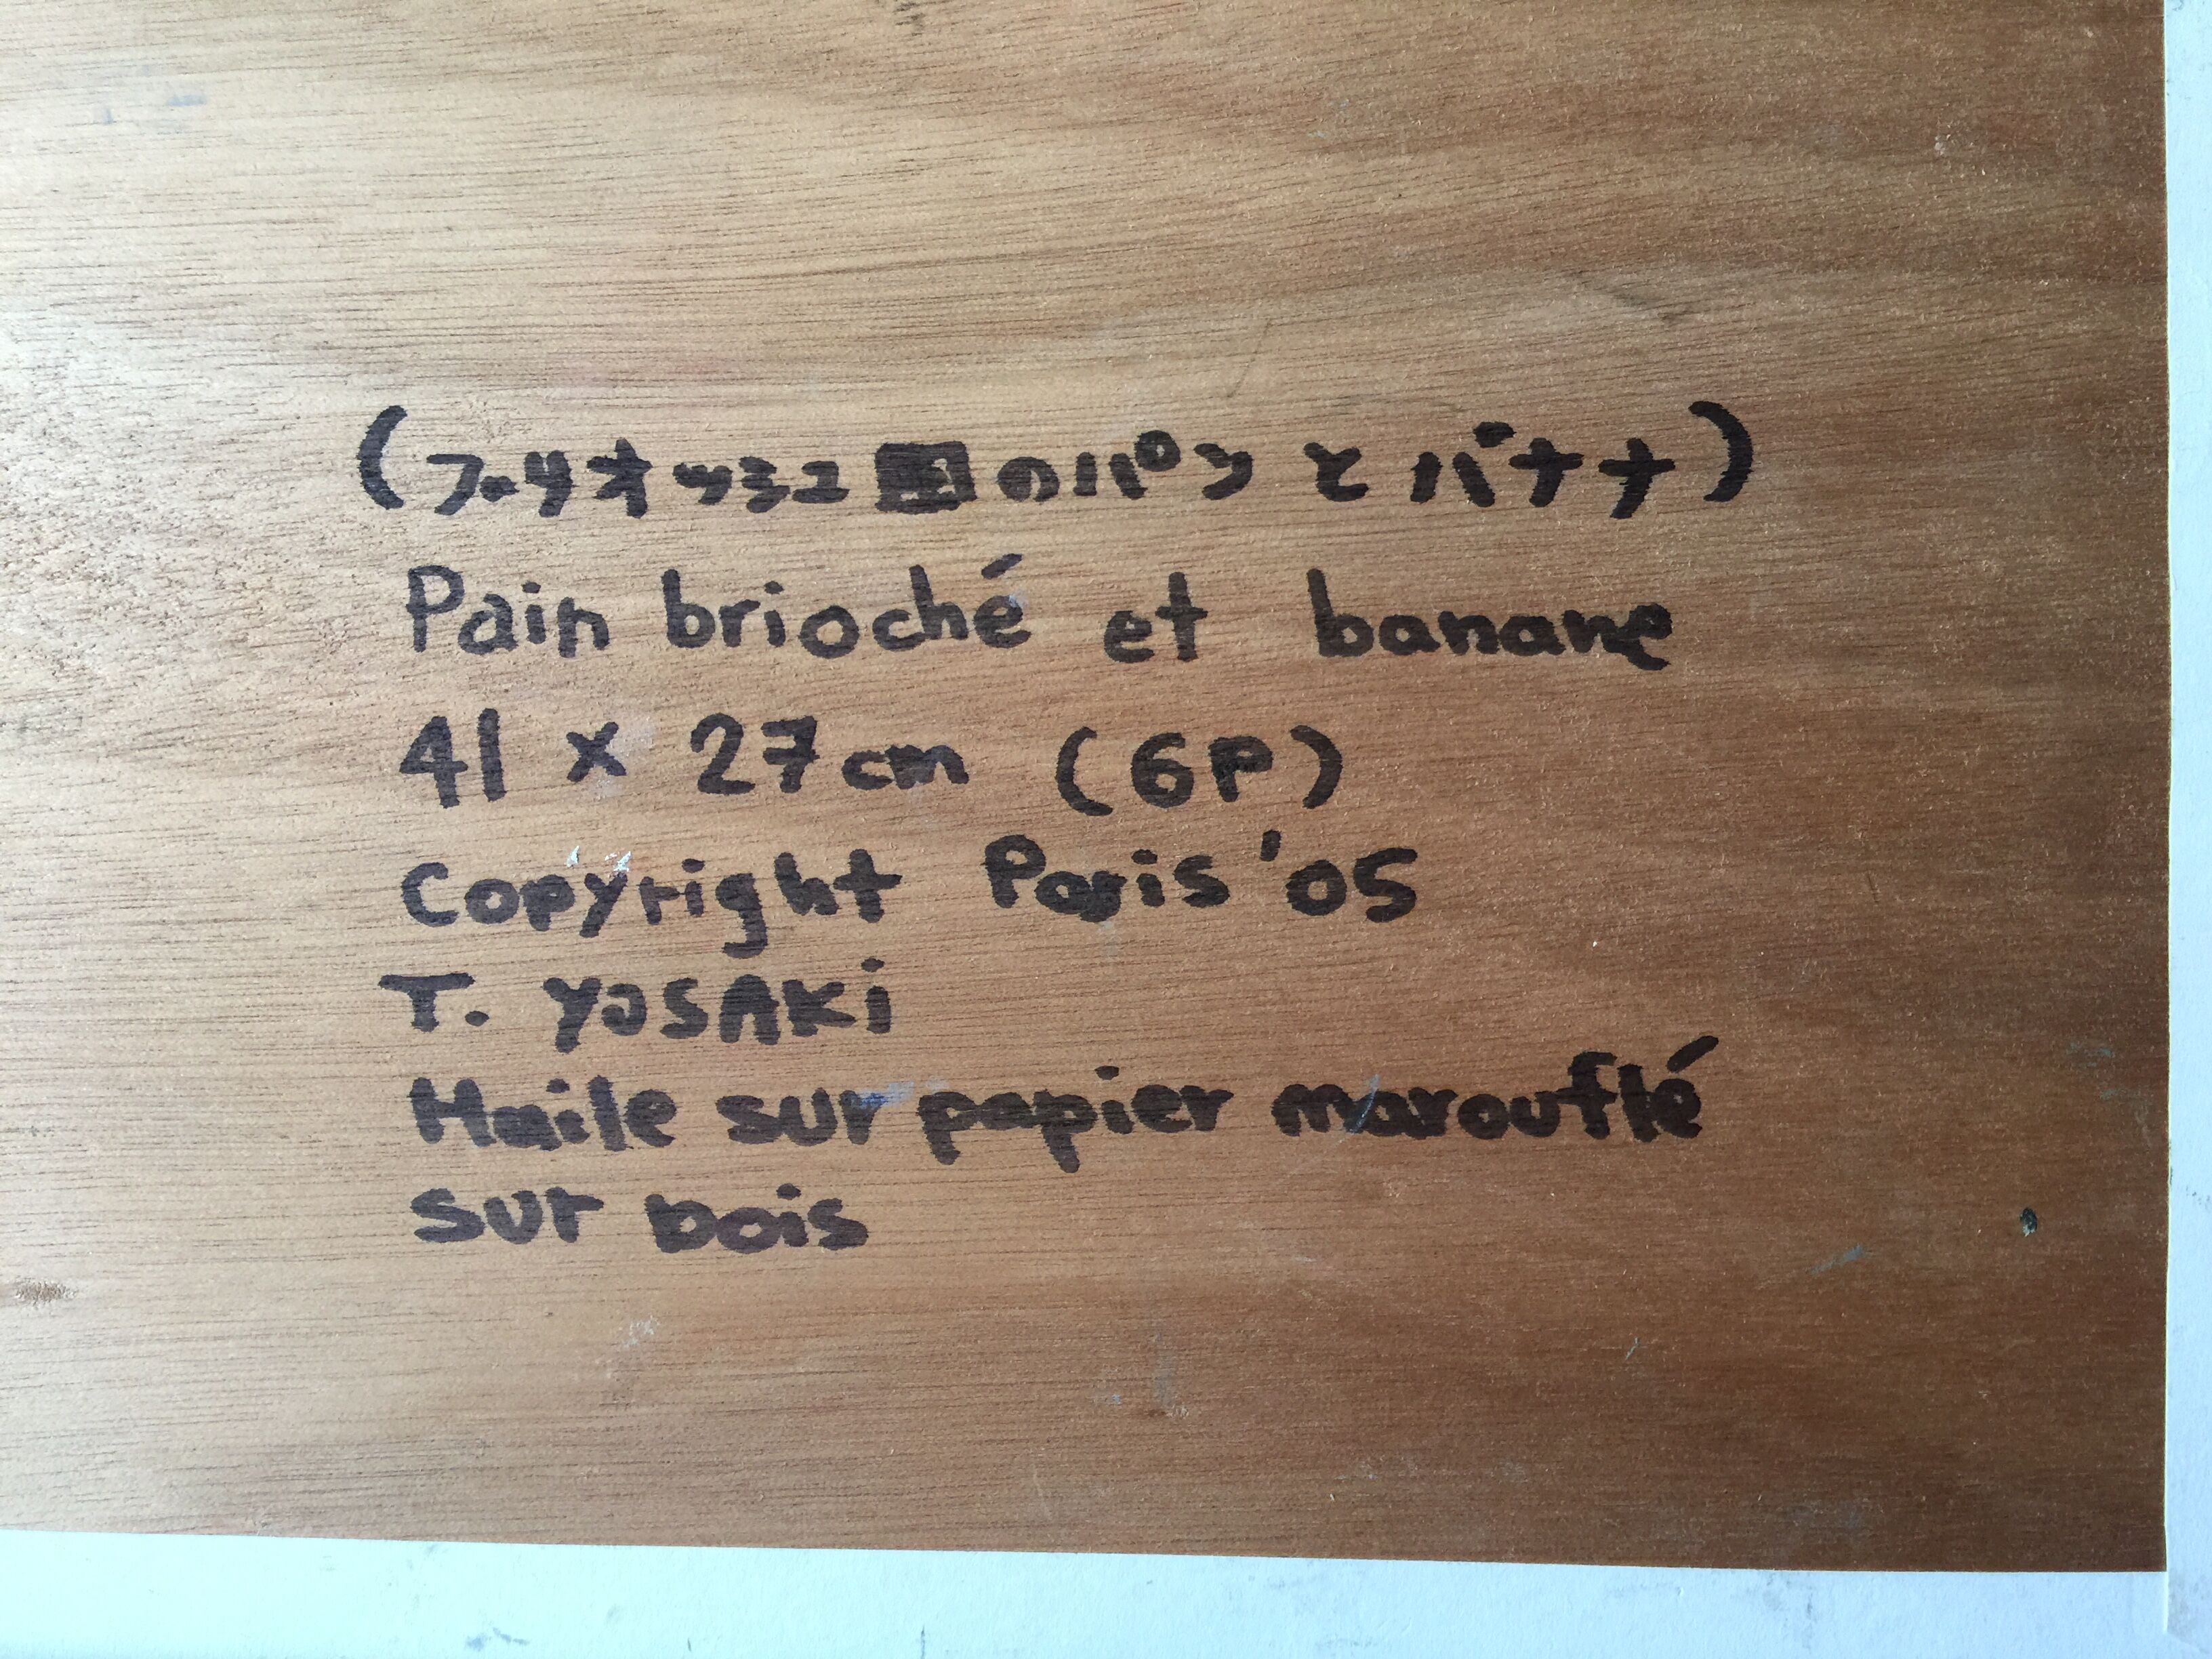 (ブリオッシュ風のパンとバナナ)
Pain brioché et banane
41 x 27cm (6P)
Copyright Paris '05
T. YOSAKi
Huile sur papier marouflé
sur bois